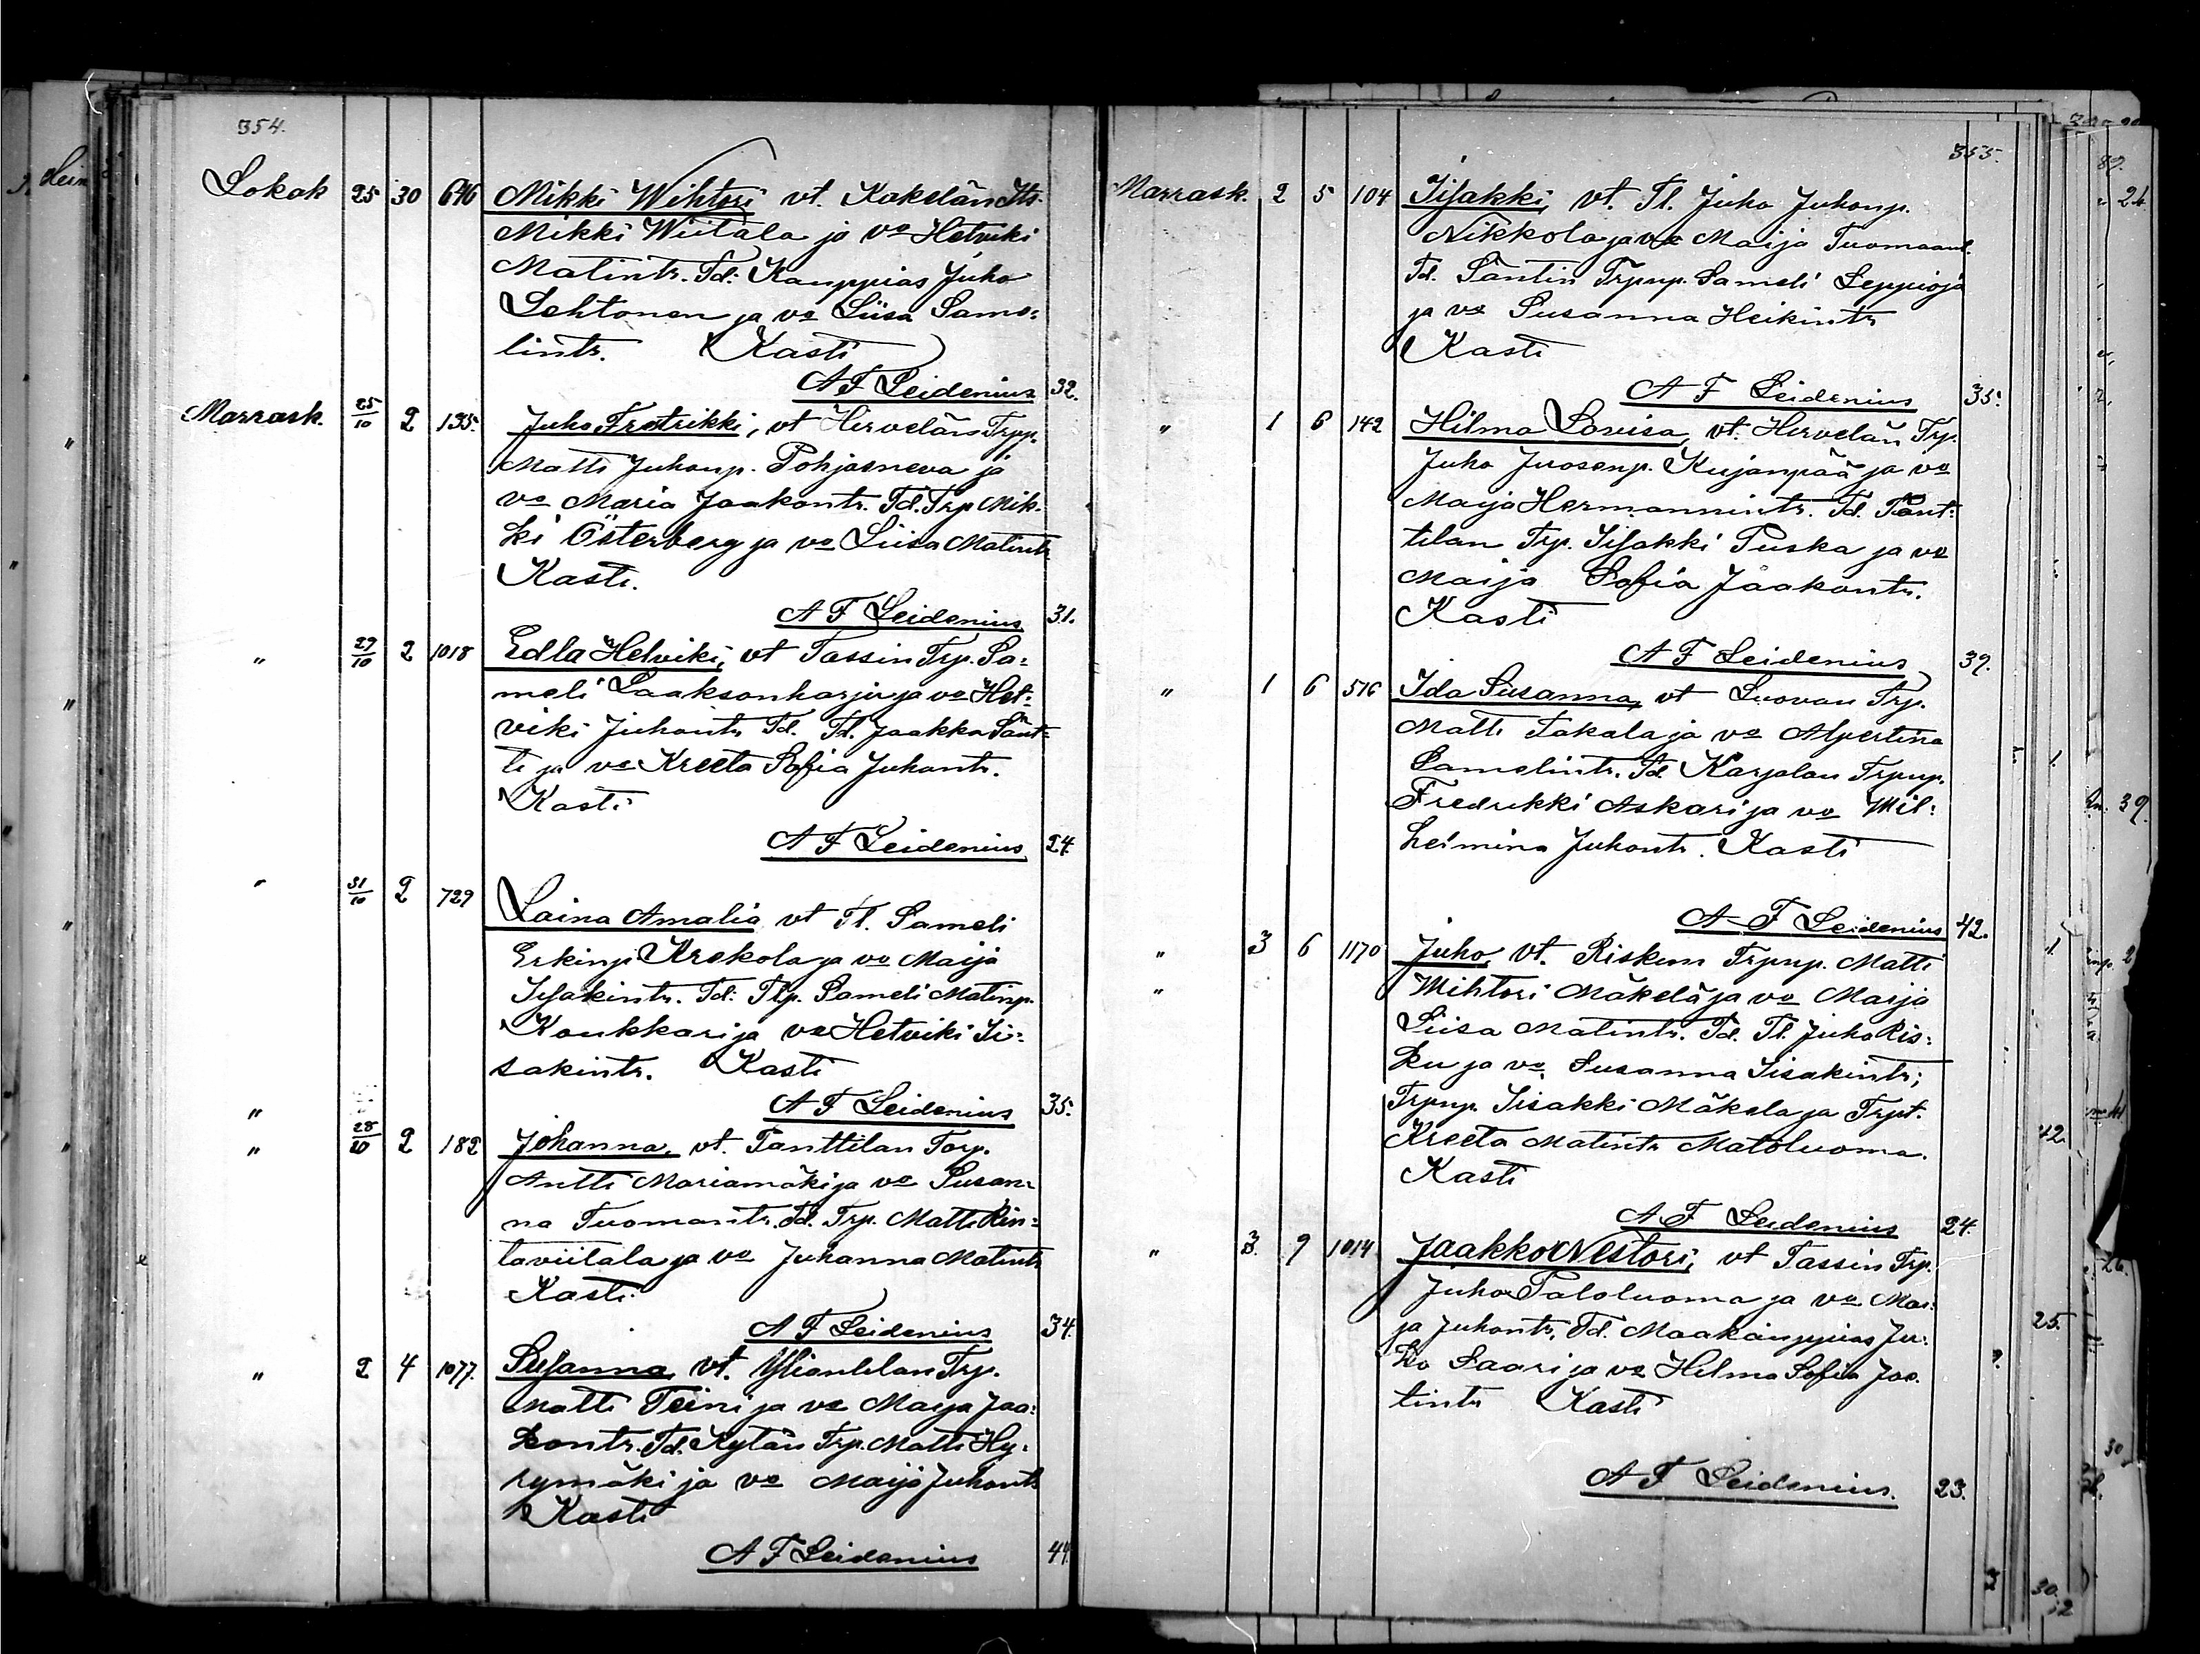 354.
Lokak 25 30 646 Mikki Wihtori vt. Kokelän Its.
Mikki Wiitala ja vo Hetviki
Matintr. Td: Kauppias Juho
Lehtonen ja vo Liisa Same:
lintr. Kasti
A F Leidenius 32.
Marrask. 25/10 2 135. Juho Fretrikki, vt Hirvelän Trpp.
Matti Juhonp. Pohjasneva ja
vo Maria Jaakontr. Td. Trp Mik-
ki Österberg ja vo Liisa Matintr
Kasti.
A F Leidenius 31.
" 27/10 2 1018 Edla Helviki, vt Tassin Trp. Sa:
meli Laaksonharju ja vo Het:
viki Juhontr Td. Tl. Jaakko Sänt:
ti ja vo Kreeta Sofia Juhontr.
Kasti
A F Leidenius 24.
" 31/10 2 729 Laina Amalia vt Tl. Sameli
Erkinp. Krekola ja vo Maija
Iisakintr. Td: Tlp. Sameli Matinp.
Koukkari ja vo Hetviki Ii:
sakintr. Kasti
" A F Leidenius 35.
" 28/10 2 182 Johanna, vt. Panttilan Torp.
Antti Mariamäki ja vo Susan:
na Tuomantr. Td. Trp. Matti Rin:
taviitala ja vo Juhanna Matintr
Kasti.
A F Leidenius 34.
" 2 4 1077. Susanna, vt. Yliantilan Trp.
Matti Teini ja vo Maija Jaa:
kontr. Td. Kytän Trp. Matti Hy:
rymäki ja vo Maija Juhontr
Kasti
A F Leidenius 44.
355.
Marrask. 2 5 104 Iisakki, vt. Tl. Juho Juhonp.
Nikkola ja vo Maija Tuomaant.
Td. Säntin Trpnp. Sameli Leppioja
ja vo Susanna Heikintr
Kasti
A F Leidenius 35.
" 1 6 142 Hilma Lovisa, vt. Hirvelän Trp.
Juho Juosenp. Kujanpää ja vo
Maija Hermannintr. Td. Pant:
tilan Trp. Iisakki Puska ja vo
Maija Sofia Jaakontr.
Kasti
A F Leidenius 39.
" 1 6 516 Ida Susanna, vt Luovan Trp.
Matti Takala ja vo Alpertina
Samelintr. Td. Karjalan Trpnp.
Fredrikki Askari ja vo Wil:
helmina Juhontr. Kasti
A F Leidenius 42.
" 3 6 1170 Juho, vt. Riskun Trpnp. Matti
" Wihtori Mäkelä ja vo Maija
Liisa Matintr. Td. Tl. Juho Ris:
ku ja vo, Susanna Iisakintr;
Trpnp. Iisakki Mäkela ja Trpt.
Kreeta Matintr Matoluoma.
Kasti
A F Leidenius 24.
" 3. 9 1014 Jaakko Nestori, vt Tassin Trp.
Juho Paloluoma ja vo Mai:
ja Juhontr, Td. Maakauppias Ju:
ho Saari ja vo Hilma Sofia Jaa.
tintr Kasti
A F Leidenius. 23.